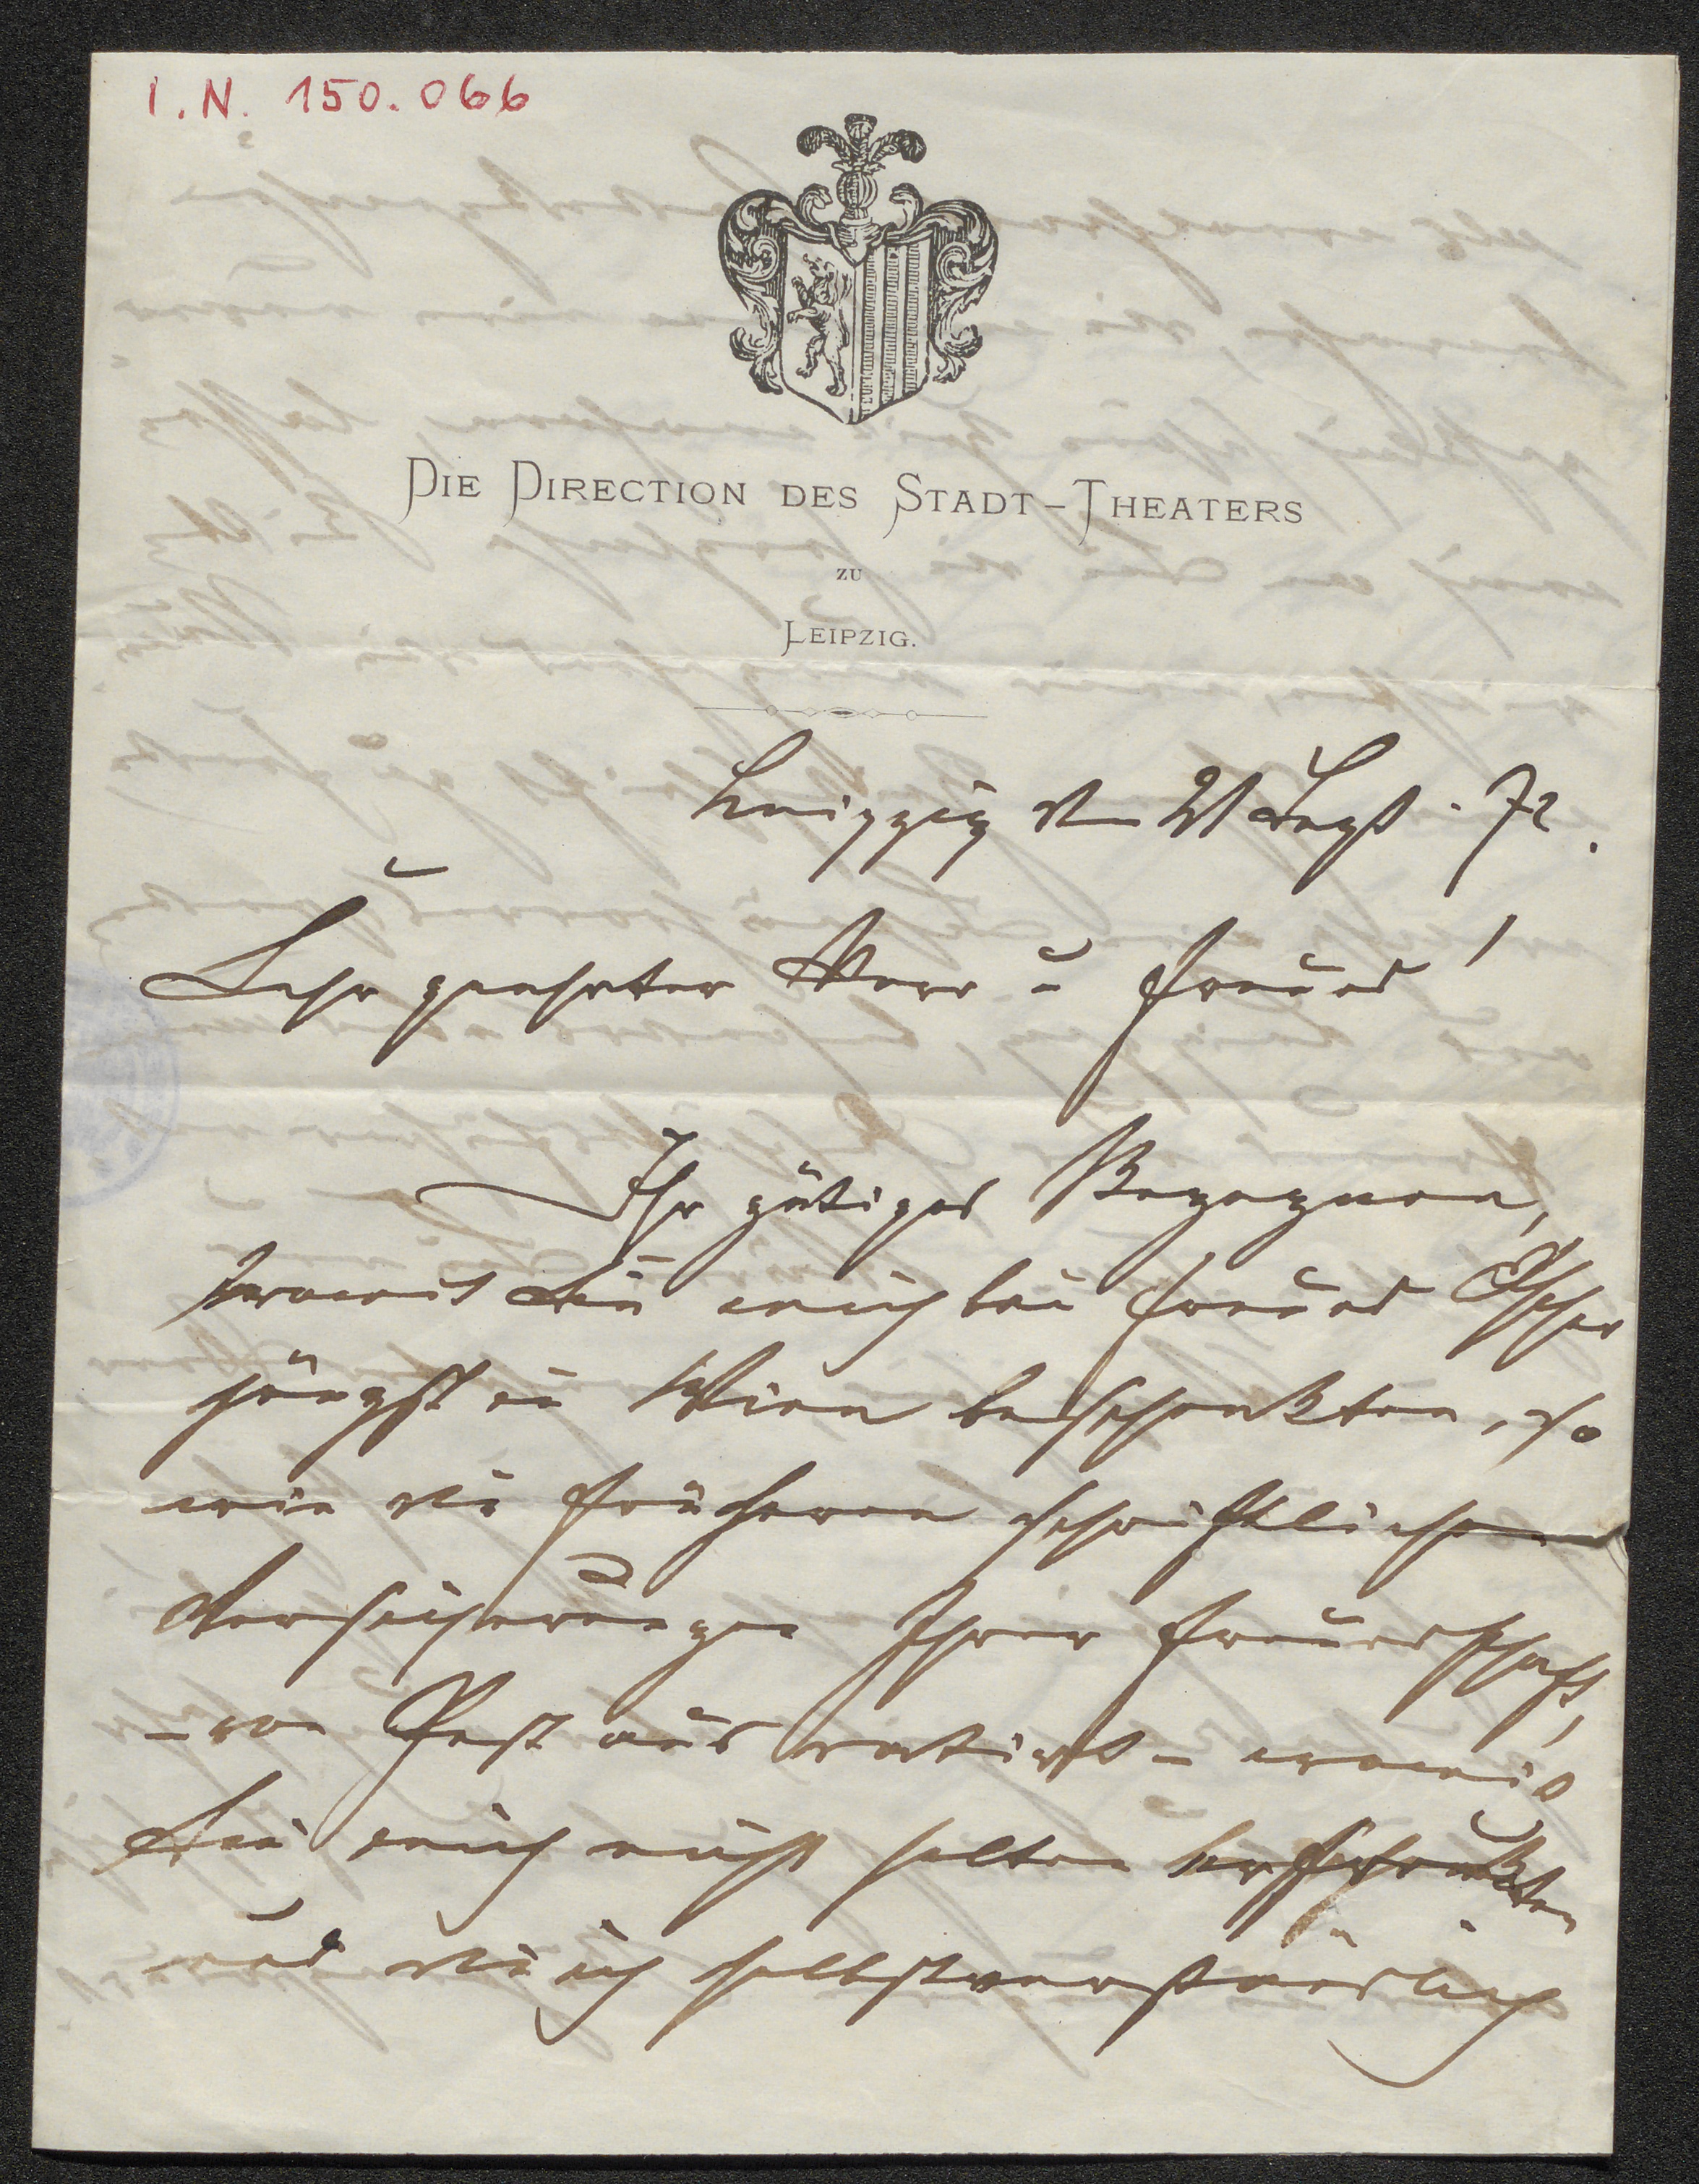 I. N. 150.066
DIE DIRECTION DES STADT-THEATERS
ZU
LEIPZIG.
Leipzig 21 Sept. 72.
Sehr geehrter Herr u Freund!
Ihr gütiges Begegnen,
womit Sie mich bei Freund
jüngst in Wien beschenkten, so
wie die früheren schriftlichen
Versicherungen Ihrer Freundschaft,
– von Pest aus datirt – womit
Sie mich nicht selten
und die ich selbstverständlich